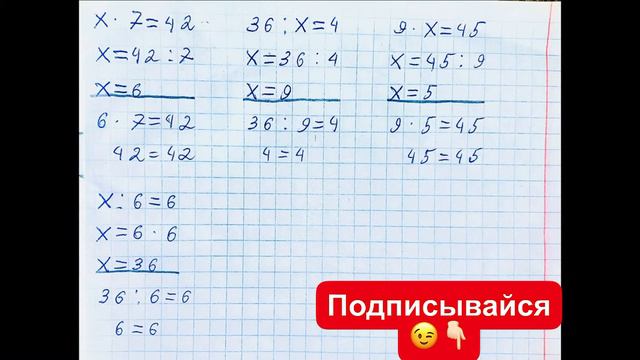 x · 7 = 42
x = 42 : 7
x = 6
6 · 7 = 42
42 = 42
36 : x = 4
x = 36 : 4
x = 9
36 : 9 = 4
4 = 4
9 · x = 45
x = 45 : 9
x = 5
9 · 5 = 45
45 = 45
x : 6 = 6
x = 6 · 6
x = 36
36 : 6 = 6
6 = 6
Подписывайся
😉👇🏻